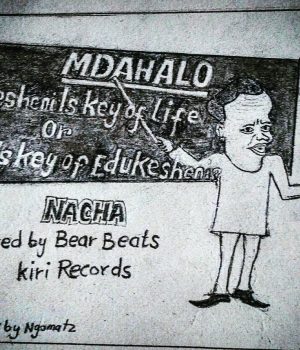 MDAHALO
eshenils key of life
or
s key of Edukeshen
NACHA
ed by Bear Beats
kiri Records
by Ngomatz